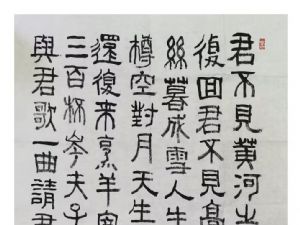 君不見黃河之
復回君不見高
絲暮成雪人生
樽空對月天生
還復來烹羊宰
三百杯岑夫子
與君歌一曲請君